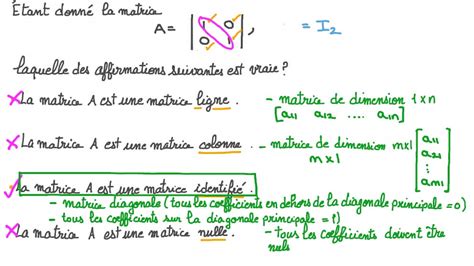 Étant donné la matrice
A = | 1 0 | , = I₂
| 0 1 |
laquelle des affirmations suivantes est vraie ?
x La matrice A est une matrice ligne. - matrice de dimension 1 x n
[a₁₁ a₁₂ .... a₁ₙ]
x La matrice A est une matrice colonne. - matrice de dimension m x 1 [a₁₁
m x 1 a₂₁
⋮
aₘ₁]
✓ La matrice A est une matrice identifié.
- matrice diagonale (tous les coefficients en dehors de la diagonale principale = 0)
- tous les coefficients sur la diagonale principale = 1)
x La matrice A est une matrice nulle. - tous les coefficients doivent être
nuls